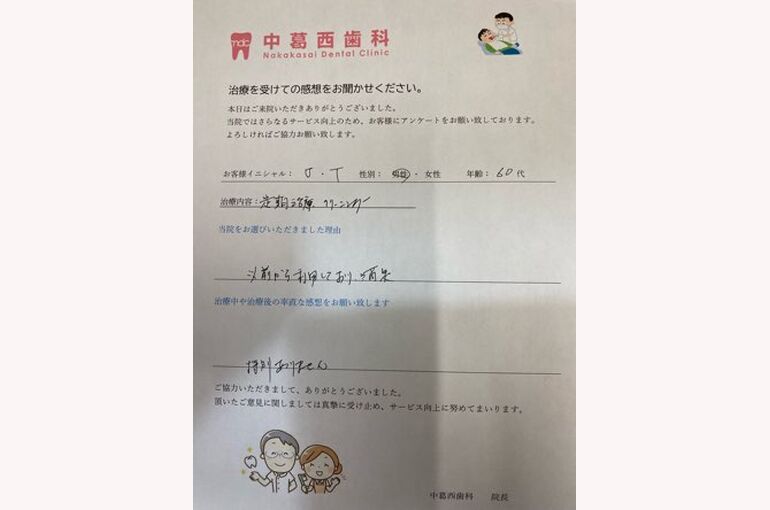 mdc 中葛西歯科
Nakakasai Dental Clinic
治療を受けての感想をお聞かせください。
本日はご来院いただきありがとうございました。
当院ではさらなるサービス向上のため、お客様にアンケートをお願い致しております。
よろしければご協力お願い致します。
お客様イニシャル： J・T 性別： 男性 ・ 女性 年齢： 60 代
治療内容： 定期治療 クリーニング
当院をお選びいただきました理由
以前から利用しており
治療中や治療後の率直な感想をお願い致します
特別ありません
ご協力いただきまして、ありがとうございました。
頂いたご意見に関しましては真摯に受け止め、サービス向上に努めてまいります。
中葛西歯科 院長